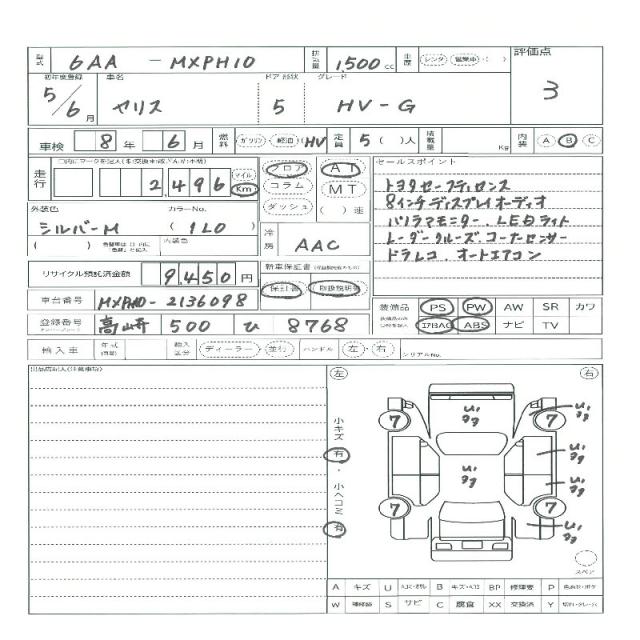 型式 6AA - MXPH10 排気量 1,500 cc 車歴 レンタ ・ 営業車 ・ ( ) 評価点
3
初年度登録 車名 ドア 形状 グレード
5/6月 ヤリス 5 HV-G
車検 8年 6月 燃料 ガソリン・軽油・(HV 定員 5 ( )人 積載量 Kg 内装 A B C
走行 2,496 マイル Km フロア コラム ダッシュ AT MT ( )速 セールスポイント
トヨタセーフティセンス
8インチディスプレイオーディオ
パノラマモニター、LEDライト
レーダークルーズ、コーナーセンサー
ドラレコ、オートエアコン
外装色 カラーNo. シルバーM ( 1L0 ) 冷房 AAC
( ) 内装色
リサイクル預託済金額 9,450 円 新車保証書 保証書 取扱説明書
車台番号 MXPH10-2136098 装備品 PS PW AW SR カワ
登録番号 高崎 500 ひ 8768 エアBAG ABS ナビ TV
輸入車 年式 輸入区分 ディーラー・並行 ハンドル 左・右 シリアルNo.
左 右
小キズ 有 ・ 小ヘコミ 有
7 7 7 7
スペア
A キズ U B キズ・ BP 修理要 P
W S サビ C 腐食 XX 交換済 Y